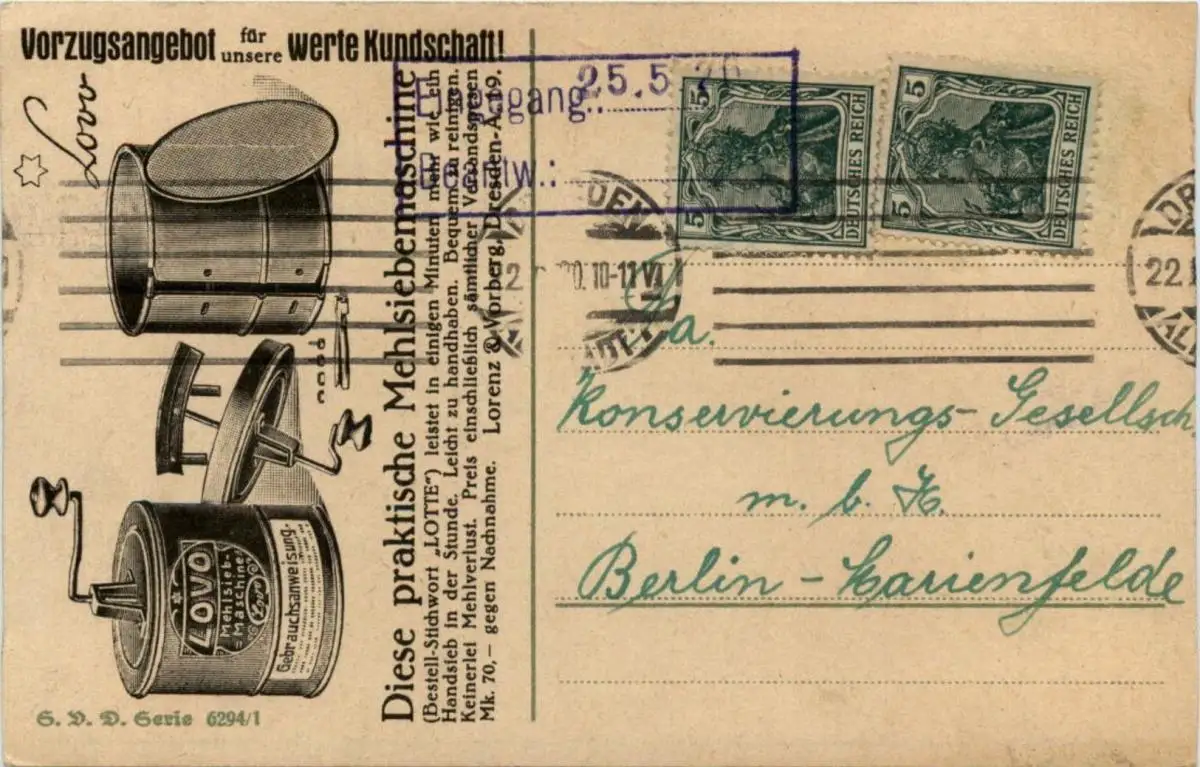 Vorzugsangebot für unsere werte Kundschaft!
Lovo
LOVO
Mehlsieb-
Maschine
Lovo
Gebrauchsanweisung.
S. V. D. Serie 6294/1
Diese praktische Mehlsiebemaschine
(Bestell-Stichwort „LOTTE“) leistet in einigen Minuten mehr wie ein
Handsieb in der Stunde. Leicht zu handhaben. Bequem zu reinigen.
Keinerlei Mehlverlust. Preis einschließlich sämtlicher Versandspesen
Mk. 70,– gegen Nachnahme. Lorenz & Vorberg, Dresden-A. 19.
Eingang:
25.5.
5
5
DEUTSCHES REICH
5
5
DEUTSCHES REICH
DEN
10-11 V
22.
Fa.
Konservierungs-Gesellsch
m. b. H.
Berlin – Marienfelde